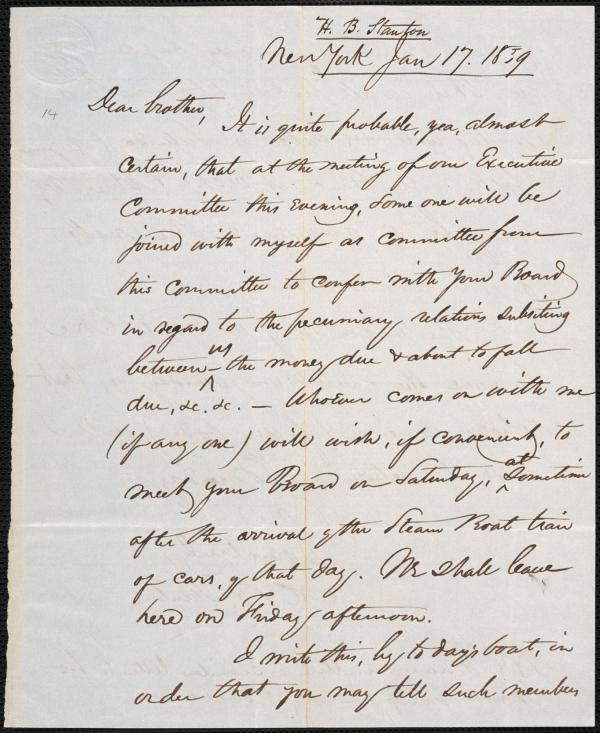 H. B. Stanton
New York Jan 17. 1839
14
Dear brother,
It is quite probable, yea, almost
certain, that at the meeting of our Executive
Committee this evening, some one will be
joined with myself as committee from
this Committee to confer with your Board
in regard to the pecuniary relations subsisting
between us – the money due & about to fall
due, &c. &c. – Whoever comes on with me
(if any one) will wish, if convenient, to
meet your Board on Saturday, at sometime
after the arrival of the Steam Boat train
of cars, of that day. We shall leave
here on Friday afternoon.
I write this, by to day's boat, in
order that you may tell such members